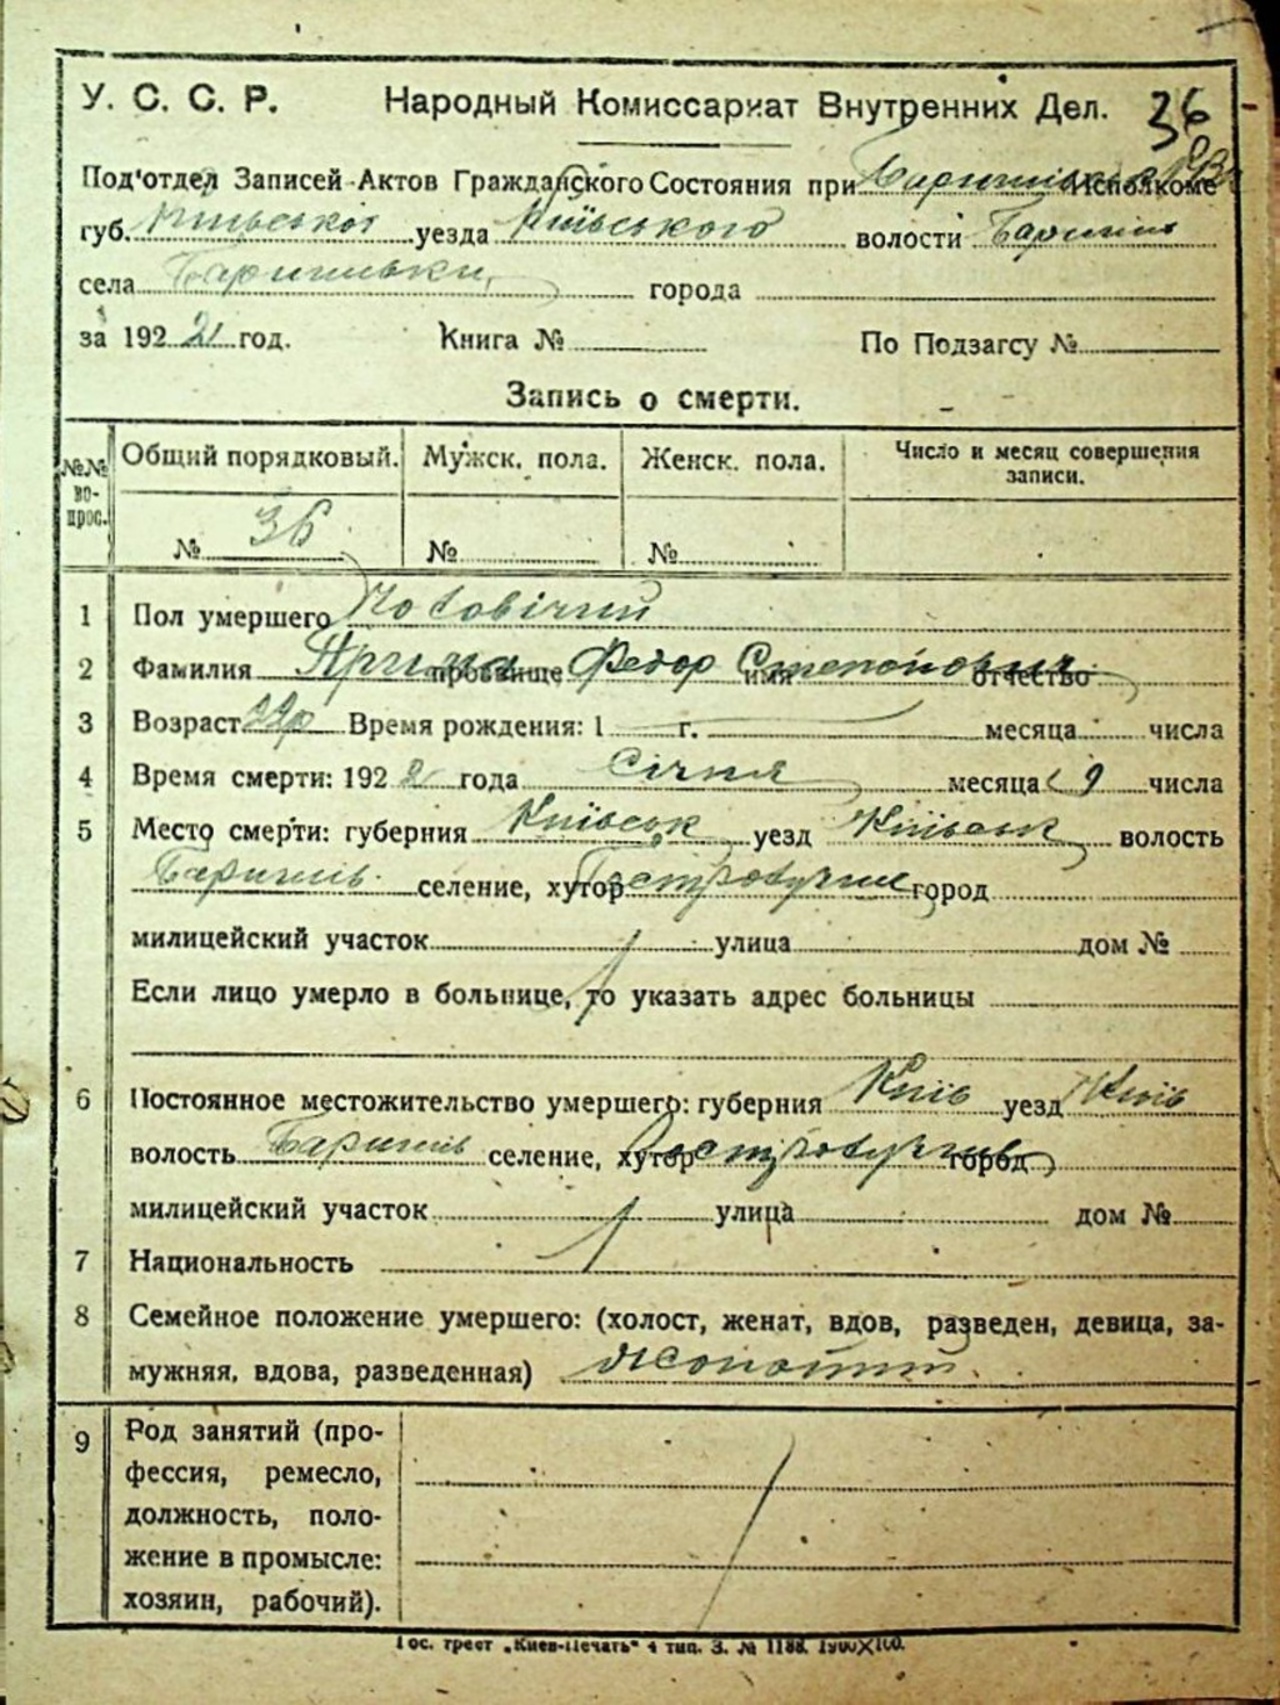 У. С. С. Р. Народный Комиссариат Внутренних Дел. 36
Под'отдел Записей Актов Гражданского Состояния при Исполкоме
губ. Київської уезда Київського волости Баришів
села Баришівки, города
за 1922 год. Книга № По Подзагсу №
Запись о смерти.
№№ вопрос. Общий порядковый. Мужск. пола. Женск. пола. Число и месяц совершения записи.
№ 36 № №
1 Пол умершего
2 Фамилия прозвище Федор имя Степанович отчество
3 Возраст Время рождения: 1 г. месяца числа
4 Время смерти: 1922 года Січня месяца 9 числа
5 Место смерти: губерния Київськ уезд Київськ волость
Баришів. селение, хутор город
милицейский участок улица дом №
Если лицо умерло в больнице, то указать адрес больницы
6 Постоянное местожительство умершего: губерния Київ уезд Київ
волость Баришів селение, хутор город
милицейский участок улица дом №
7 Национальность
8 Семейное положение умершего: (холост, женат, вдов, разведен, девица, за-
мужняя, вдова, разведенная) жонатий
9 Род занятий (про-
фессия, ремесло,
должность, поло-
жение в промысле:
хозяин, рабочий).
Гос. трест „Киев-Печать“ 4 тип. З. № 1188. 1900×100.